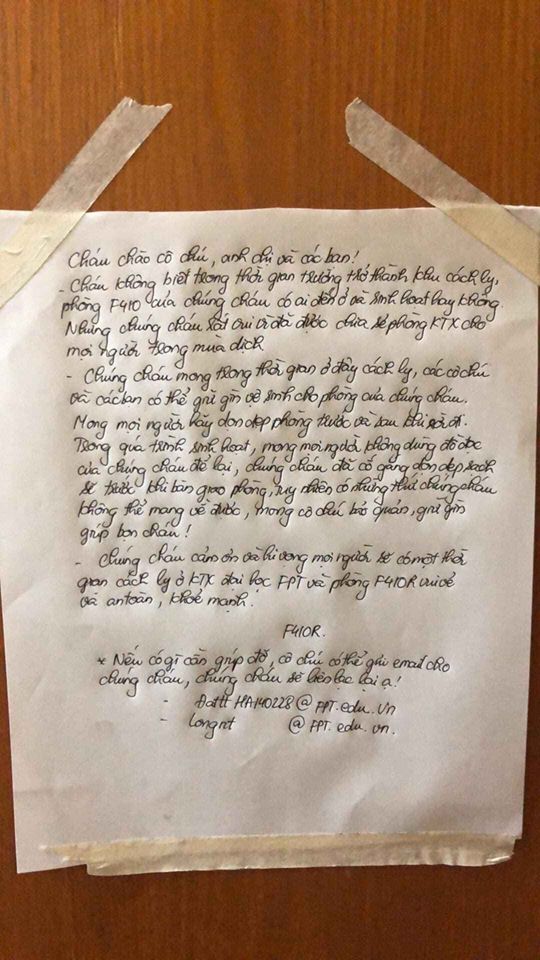 Cháu chào cô chú, anh chị và các bạn!
- Cháu không biết trong thời gian trường trở thành khu cách ly,
phòng F410 của chúng cháu có ai đến ở và sinh hoạt hay không.
Nhưng chúng cháu rất vui vì đã được chia sẻ phòng KTX cho
mọi người trong mùa dịch.
- Chúng cháu mong trong thời gian ở đây cách ly, các cô chú
và các bạn có thể giữ gìn vệ sinh cho phòng của chúng cháu.
Mong mọi người hãy dọn dẹp phòng trước và sau khi rời đi.
Trong quá trình sinh hoạt, mong mọi người không dùng đồ đạc
của chúng cháu để lại, chúng cháu đã cố gắng dọn dẹp sạch
sẽ trước khi bàn giao phòng, tuy nhiên có những thứ chúng cháu
không thể mang về được, mong cô chú bảo quản, giữ gìn
giúp bọn cháu!
- Chúng cháu cảm ơn và hi vọng mọi người sẽ có một thời
gian cách ly ở KTX đại học FPT và phòng F410R vui vẻ
và an toàn, khoẻ mạnh!
F410R.
* Nếu có gì cần giúp đỡ, cô chú có thể gửi email cho
chúng cháu, chúng cháu sẽ liên lạc lại ạ!
- Dattt HA140228@FPT.edu.Vn
- longnt @FPT.edu.vn.